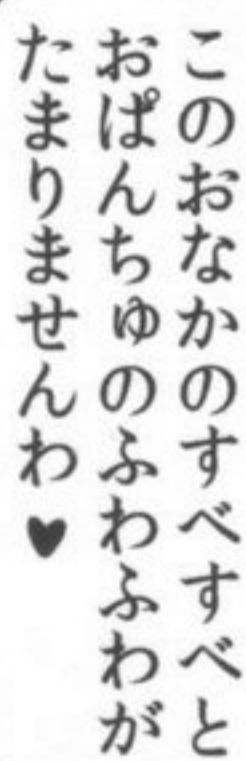 このおなかのすべすべと
おぱんちゅのふわふわが
たまりませんわ♥